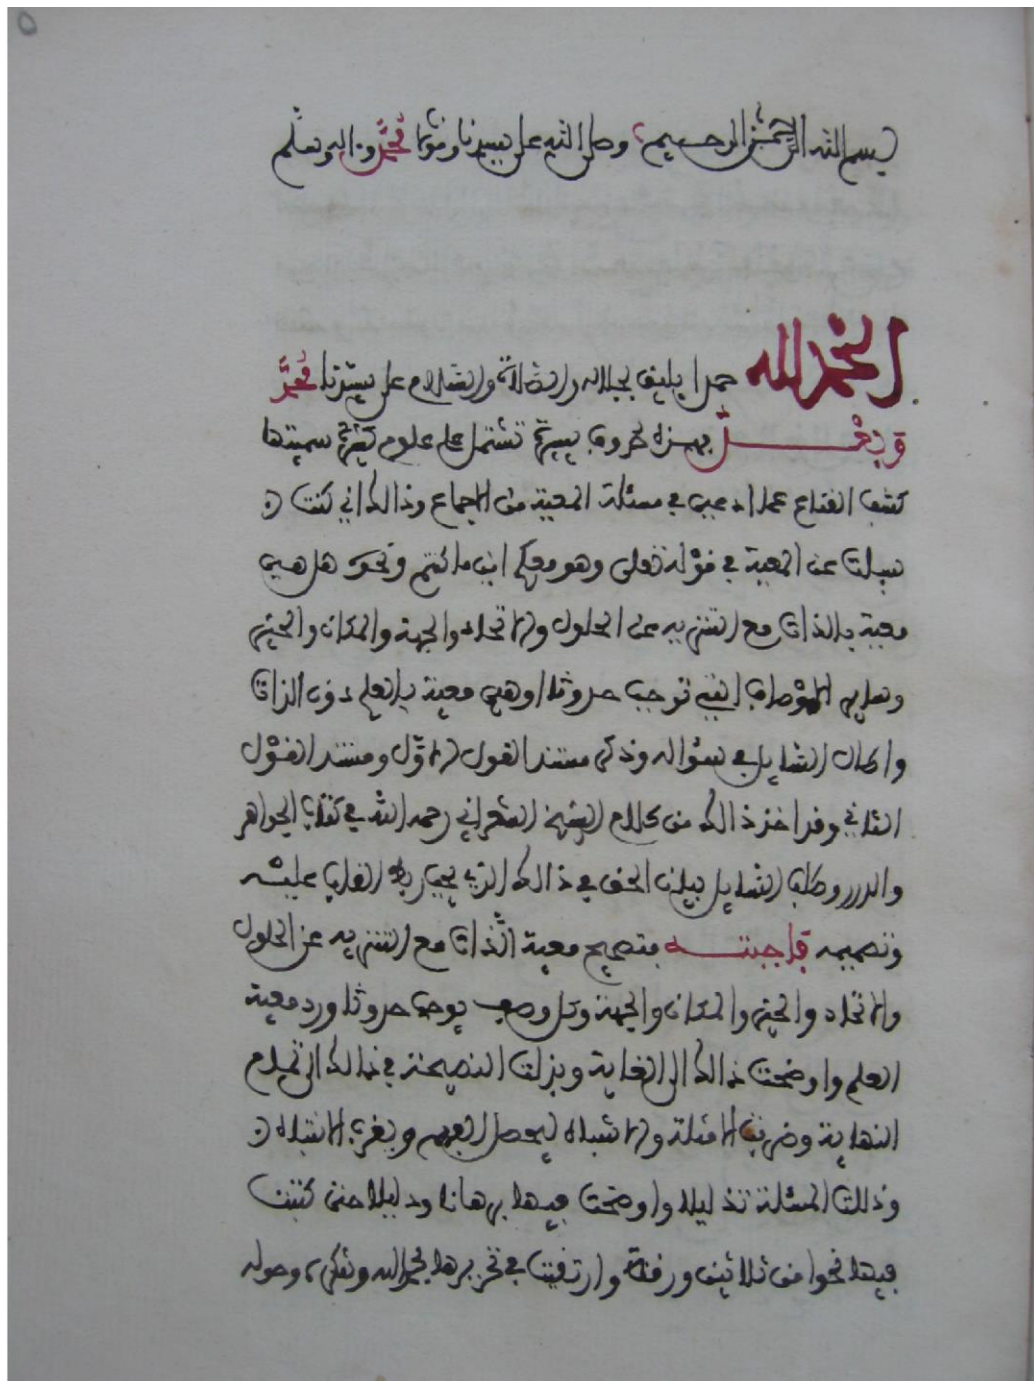 بسم الله الرحمن الرحيم وصلى الله على سيدنا ومولنا محمد وءاله وسلم
الحمد لله حمدا يليق بجلاله والصلاة والسلام على سيدنا محمد
وبعد فهذه حروف يسيرة تشتمل على علوم كثيرة سميتها
كشف القناع عما ادعي في مسئلة المعية من الاجماع وذالك اني كنت
سيلت عن المعية في قوله تعلى وهو معكم اين ما كنتم ونحوه هل هي
معية بالذات مع التنزيه عن الحلول والاتحاد والجهة والمكان والحيز
وساير الاوصاف التي توجب حدوثا او هي معية بالعلم دون الذات
واطال السايل في سؤاله وذكر مستند القول الاول ومستند القول
الثاني وقد اخذ ذالك من كلام الشيخ الشعراني رحمه الله في كتاب الجواهر
والدرر وطلب السايل بيان الحق في ذالك الذي يجب القلب عليه
وتصميمه فاجبته بتصحيح معية الذات مع التنزيه عن الحلول
والاتحاد والحيز والمكان والجهة وكل وصف يوجب حدوثا ورد معية
العلم واوضحت ذالك الى الغاية وبذلت النصيحة في ذالك الى تمام
النهاية وضربت الامثلة والاشباه ليحصل الفهم ويقرب الانتباه
وذللت المسئلة تذليلا واوضحت فيها برهانا ودليلا حتى كتبت
فيها نحوا من ثلاثين ورقة وارتقيت في تحريرها بحمد الله وشكره وحوله